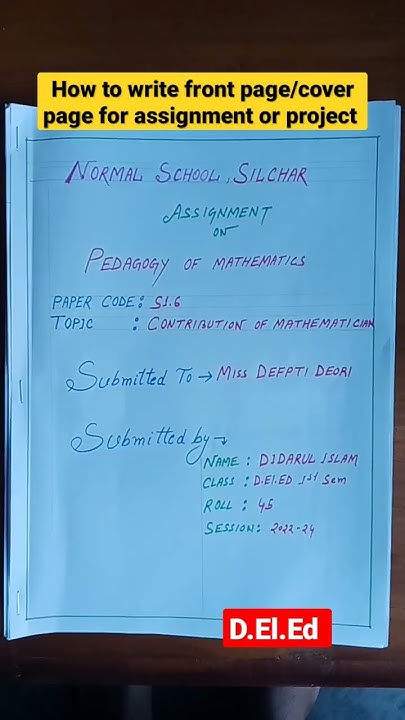 How to write front page/cover
page for assignment or project
NORMAL SCHOOL, SILCHAR
ASSIGNMENT
ON
PEDAGOGY OF MATHEMATICS
PAPER CODE: S1.6
TOPIC : CONTRIBUTION OF MATHEMATICIAN
Submitted To → MISS DEEPTI DEORI
Submitted by →
NAME : DIDARUL ISLAM
CLASS : D.El.ED 1st Sem
ROLL : 45
SESSION: 2022-24
D.El.Ed